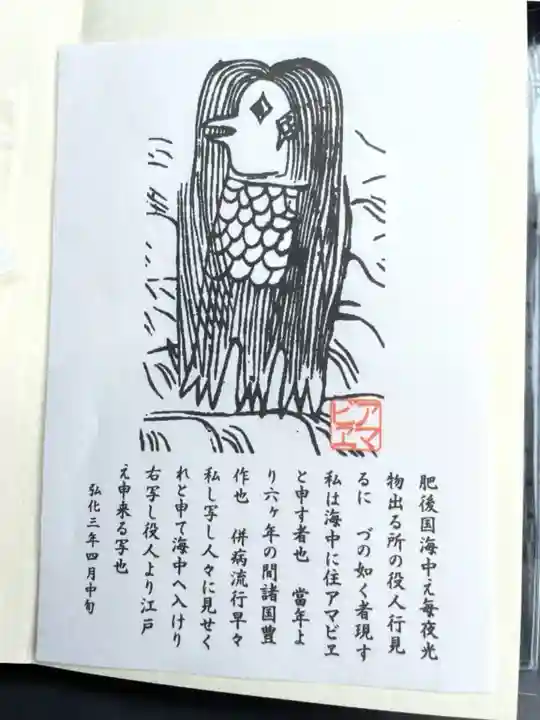 アマ
ビヱ
肥後国海中え毎夜光
物出る所の役人行見
るに　づの如く者現す
私は海中に住アマビヱ
と申す者也　當年よ
り六ヶ年の間諸国豊
作也　併病流行早々
私し写し人々に見せく
れと申て海中へ入けり
右写し役人より江戸
え申来る写也
弘化三年四月中旬